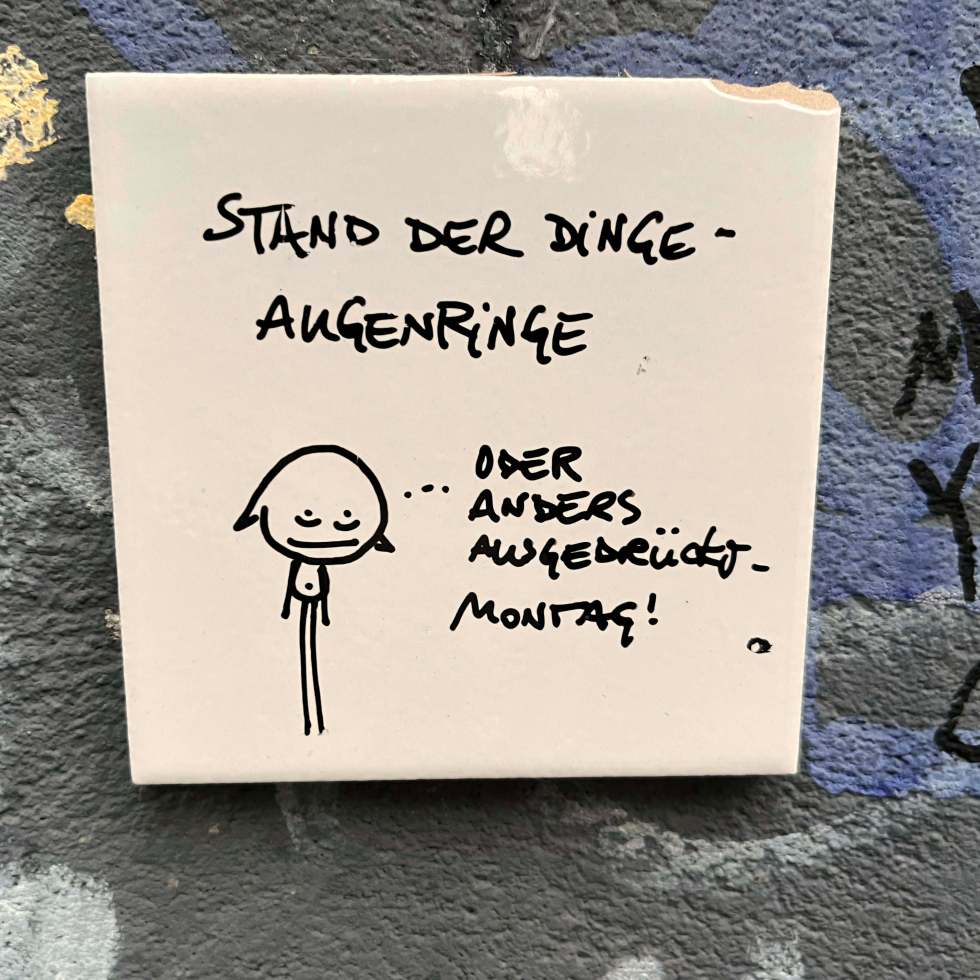 STAND DER DINGE -
AUGENRINGE
...ODER
ANDERS
AUSGEDRÜCKT -
MONTAG!